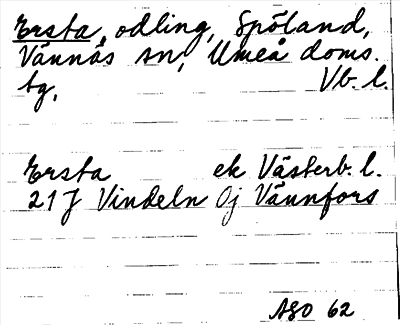 Ersta, odling, Spöland,
Vännäs sn, Umeå doms.
tg, Vb. l.
Ersta ek Västerb. l.
21J Vindeln Oj Vännfors
ASO 62